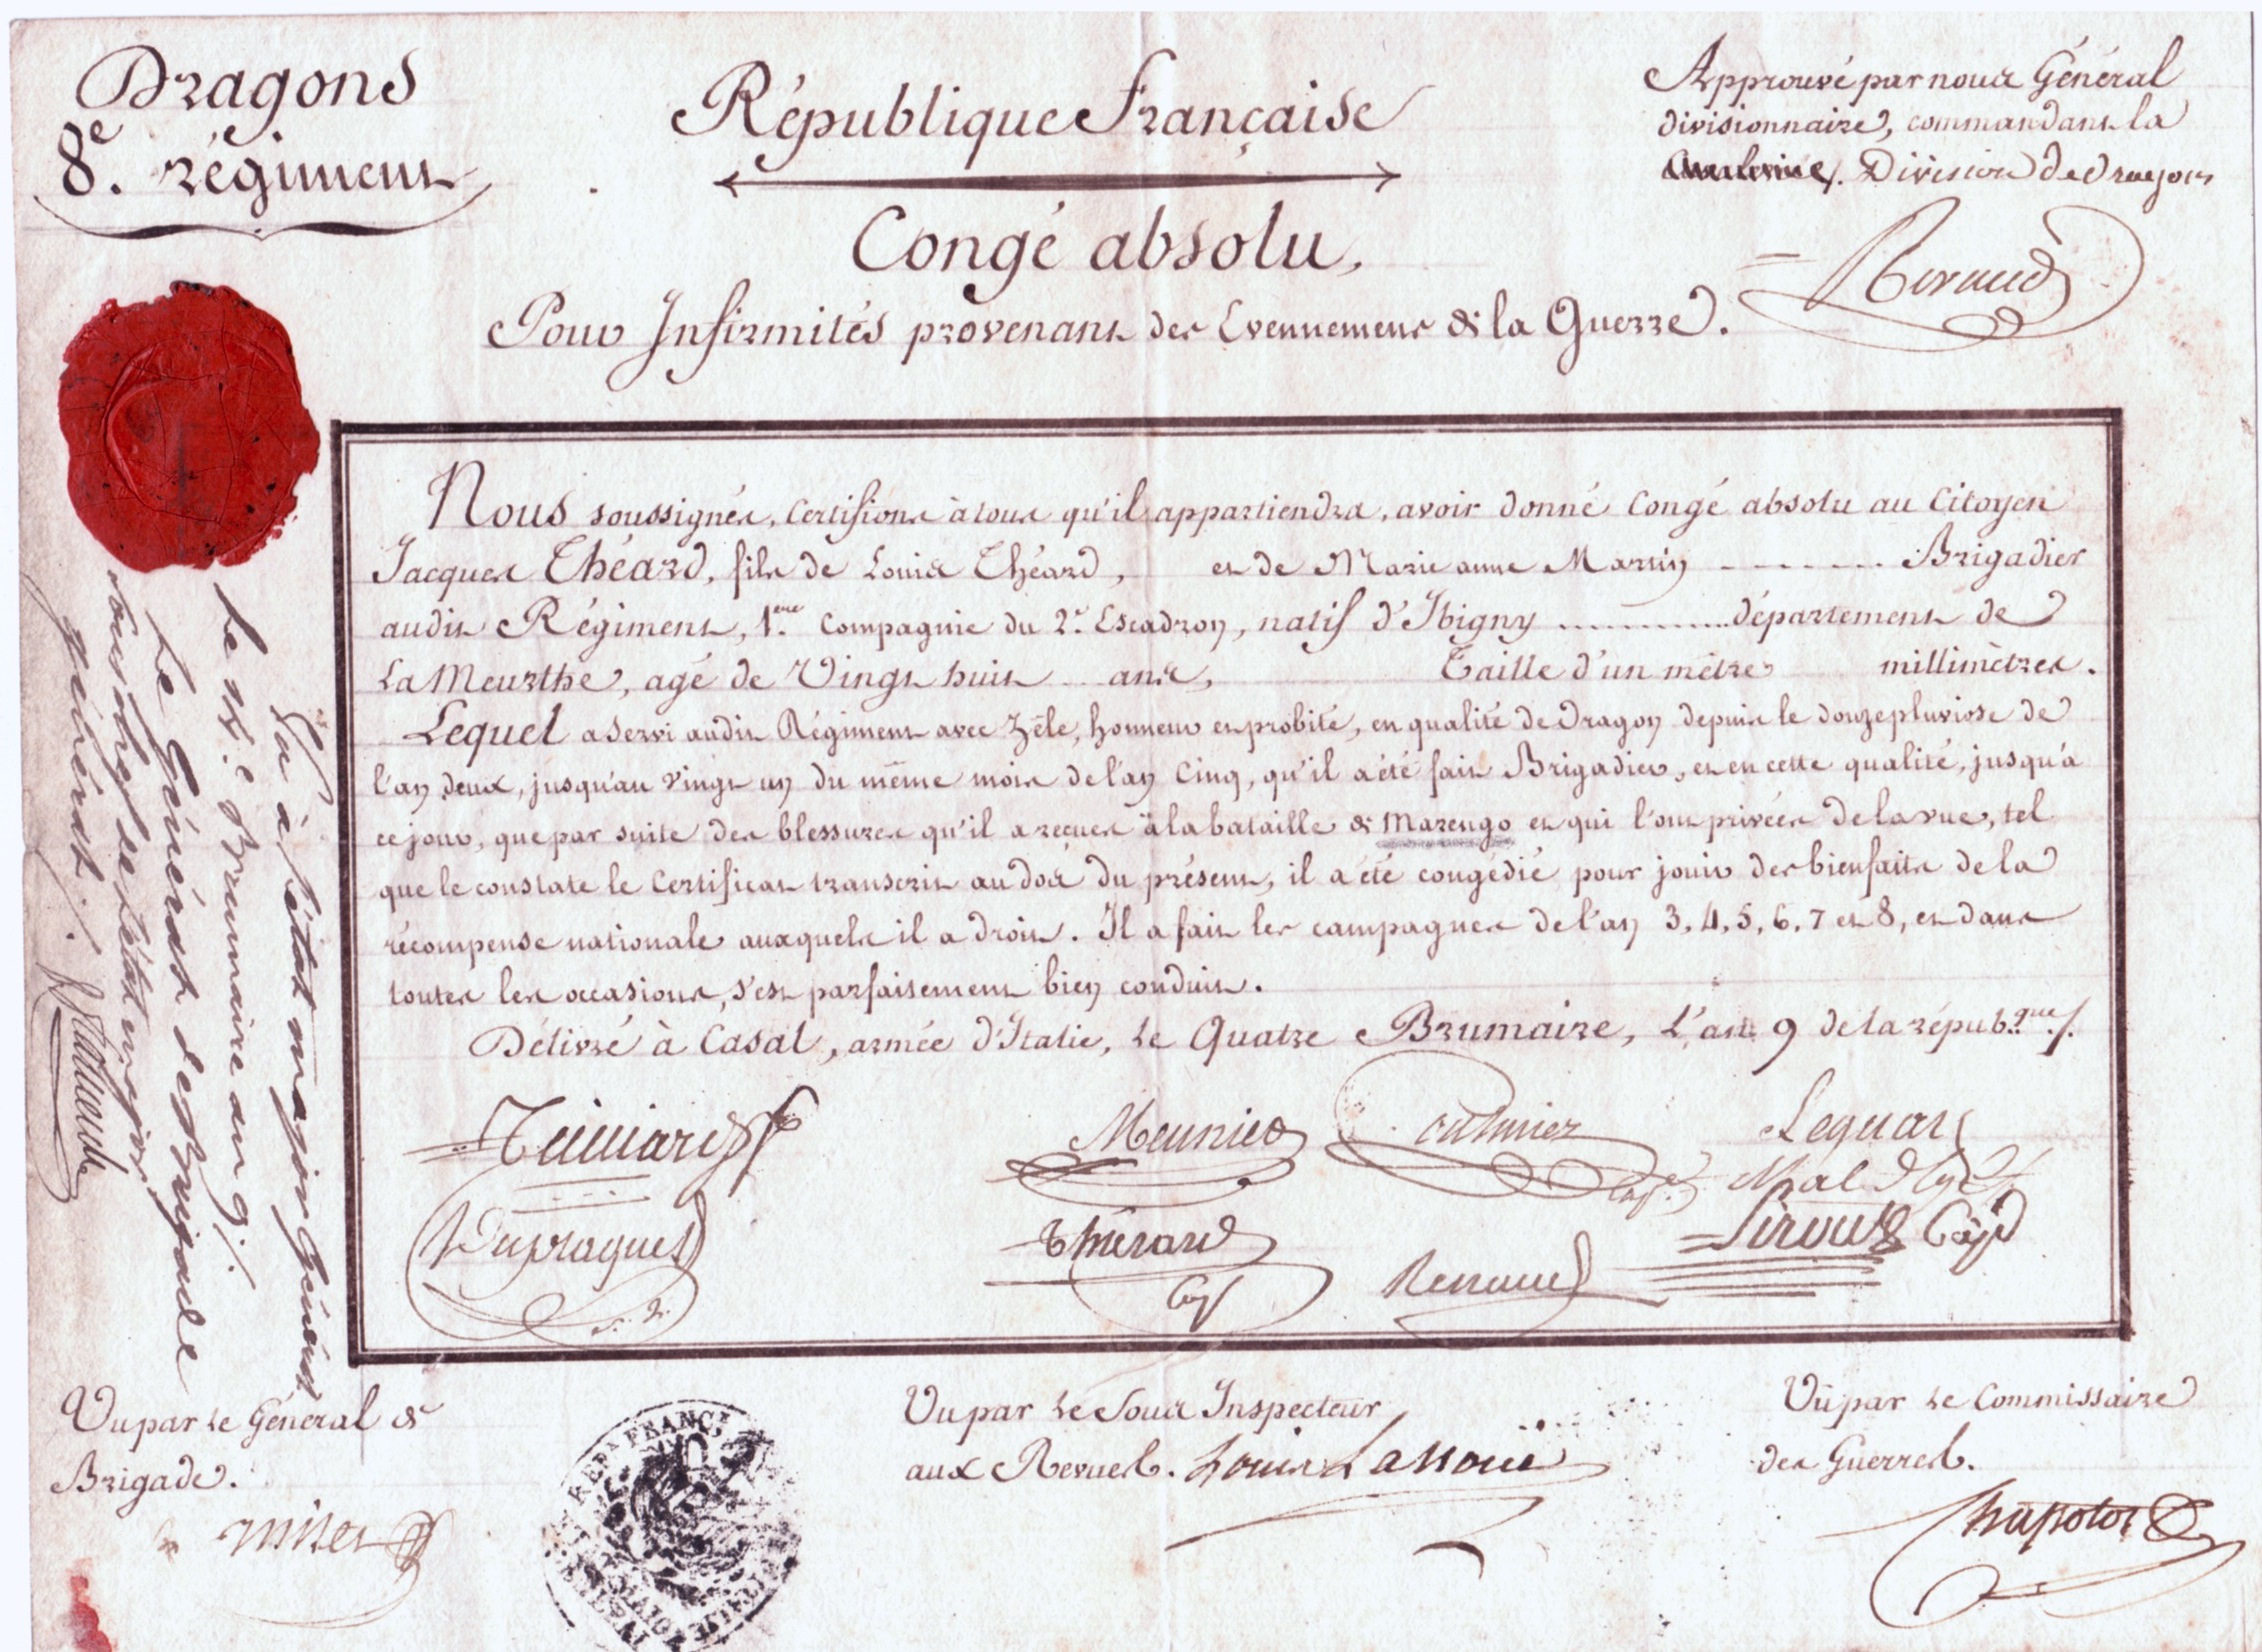 Dragons
8e. régiment
République française
Congé absolu,
Pour Infirmités provenant des Evennements de la Guerre.
Approuvé par nous Général
divisionnaire, commandant la
Division de dragons
Nous soussignés, Certifions à tous qu'il appartiendra, avoir donné Congé absolu au Citoyen
Jacques Théard, fils de Louis Théard, et de Marie anne Martin - - - - - - - Brigadier
audit Régiment, 1ere. Compagnie du 2e. Escadron, natif d'Ibigny ............ département de
La Meurthe, agé de Vingt huit ans, Taille d'un mètre millimètres.
Lequel a servi audit Régiment avec Zêle, honneur et probité, en qualité de Dragon depuis le douze pluviose de
l'an deux, jusqu'au vingt un du même mois de l'an Cinq, qu'il a été fait Brigadier, et en cette qualité, jusqu'à
ce jour, que par suite des blessures qu'il a reçues à la bataille de Marengo et qui l'ont privées de la vue, tel
que le constate le Certificat transcrit au dos du présent, il a été congédié pour jouir des bienfaits de la
récompense nationale auxquels il a droit. Il a fait les campagnes de l'an 3, 4, 5, 6, 7 et 8, et dans
toutes les occasions, s'est parfaitement bien conduit.
Délivré à Casal, armée d'Italie, le Quatre Brumaire, L'an 9 de la répub.que./.
Meunier
Lequai
Thérard
Cap
Renaud
Vu à l'état major général
le Brummaire an 9 ./.
Le Général de Brigade
sous chef de l'état major
général ./.
Vu par le Général de
Brigade.
Vu par le Sous Inspecteur
aux Revues. Louis Lanoue
Vu par le Commissaire
des Guerres.
Chapotot